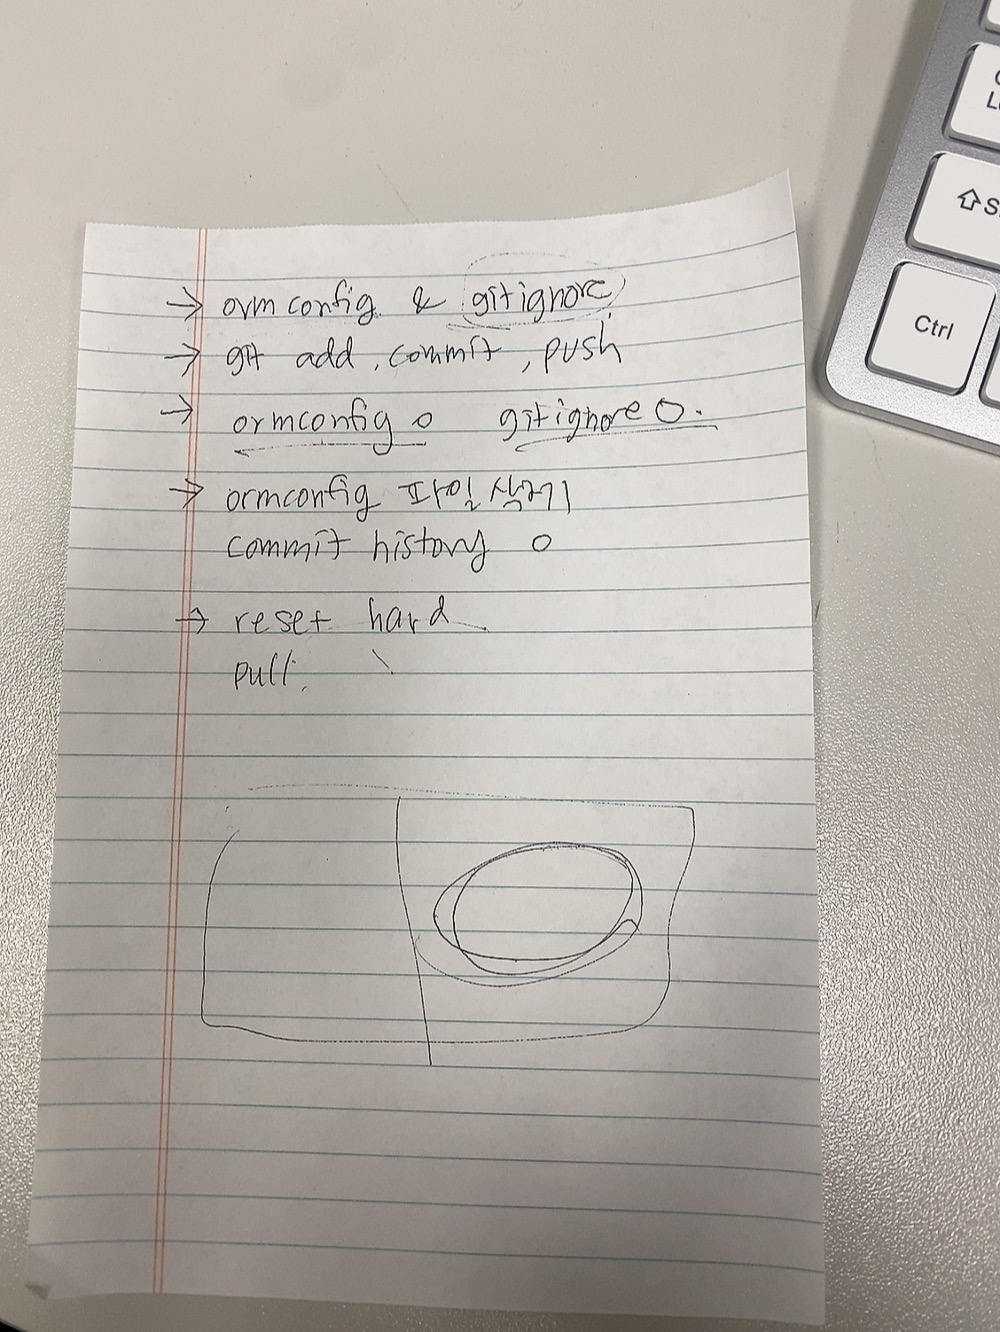 → ormconfig & gitignore
→ git add, commit, push
→ ormconfig o gitignore O.
→ ormconfig 파일 삭제
commit history o
→ reset hard
pull.
Ctrl
⇧S
L